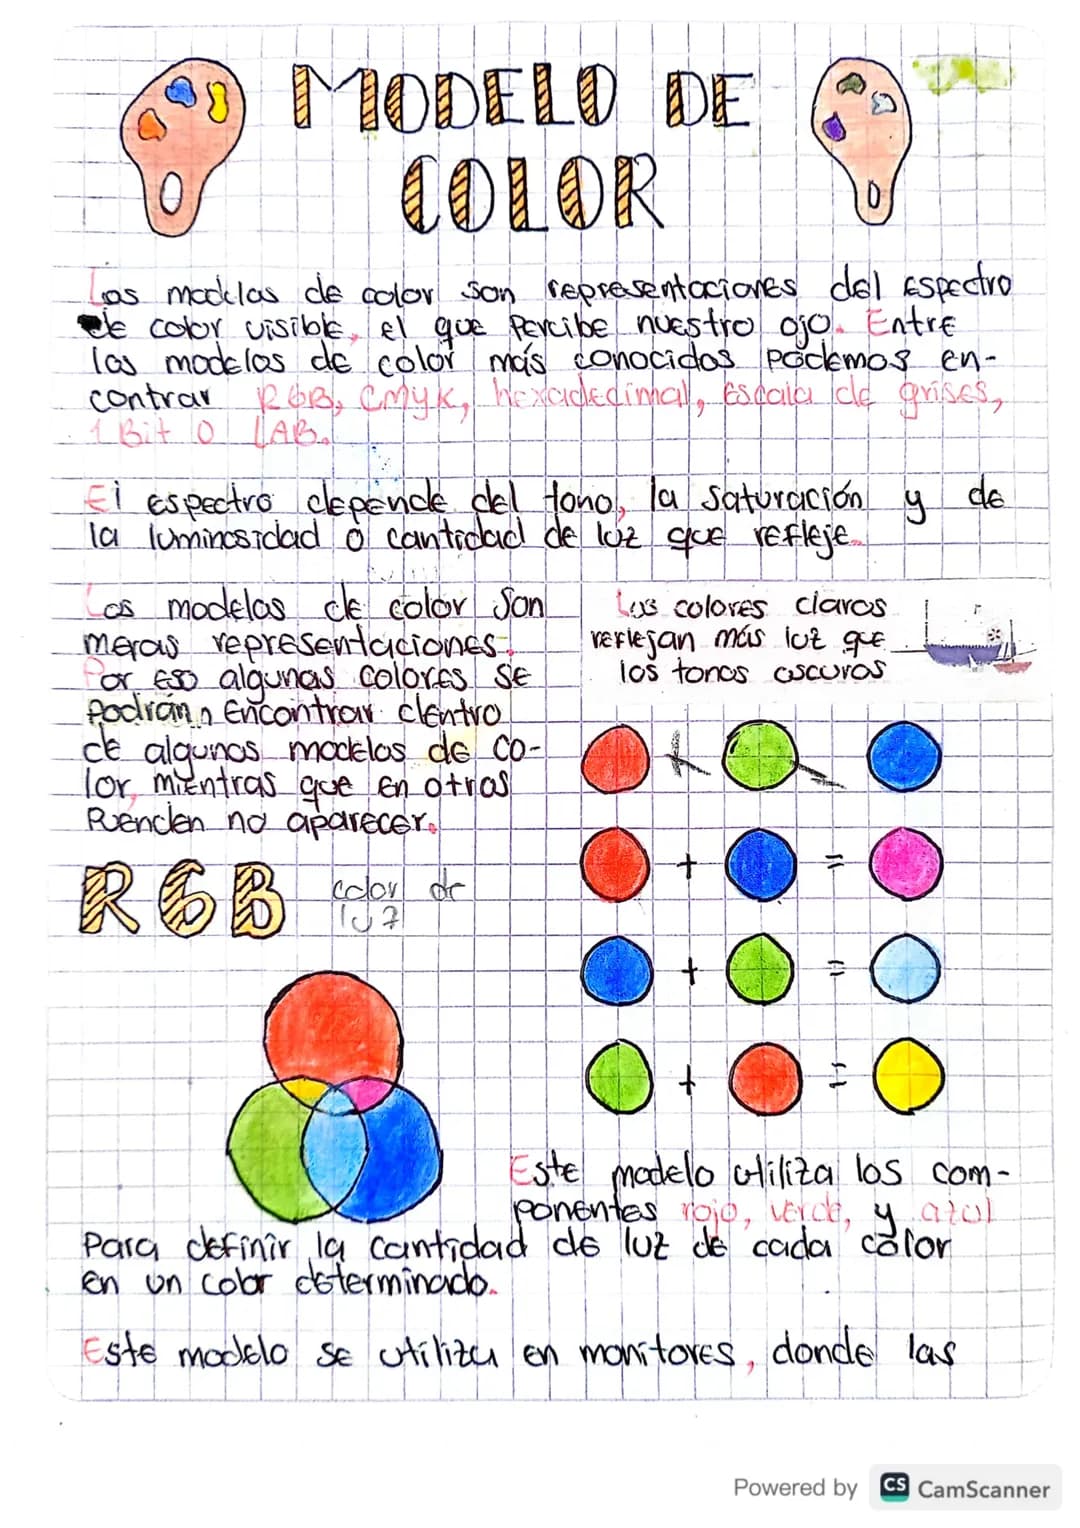 MODELO DE
COLOR
Los modelos de color son representaciones del espectro
de color visible, el que percibe nuestro ojo. Entre
los modelos de color más conocidos podemos en-
contrar RGB, CMYK, hexadecimal, Escala de grises,
1 Bit o LAB.
El espectro depende del tono, la saturación y de
la luminosidad o cantidad de luz que refleje.
Los modelos de color son
meras representaciones.
Por eso algunas colores se
podrían encontrar dentro
de algunos modelos de co-
lor, mientras que en otros
Pueden no aparecer.
Los colores claros
reflejan más luz que
los tonos oscuros
+ =
+ =
+ =
RGB color de
luz
Este modelo utiliza los com-
ponentes rojo, verde, y azul
Para definir la cantidad de luz de cada color
en un color determinado.
Este modelo se utiliza en monitores, donde las
Powered by CS CamScanner